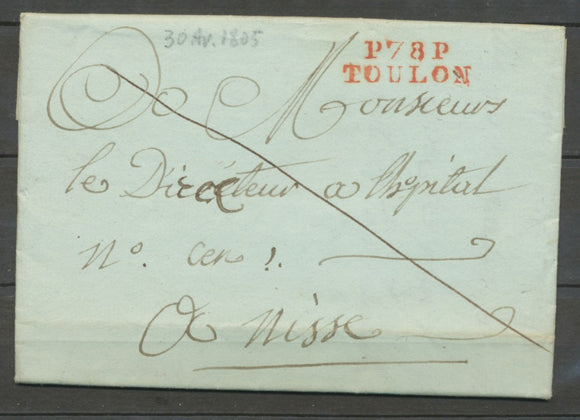 30 Av. 1805
P78P
TOULON
A Monsieur
le Directeur a lhopital
N°.
A Nisse